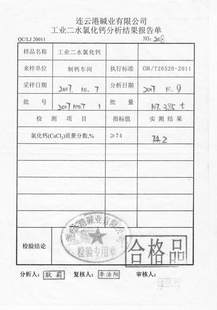 连云港碱业有限公司
工业二水氯化钙分析结果报告单
QC/LJ 20011 NO:
样品名称 工业二水氯化钙
来样单位 制钙车间 执行标准 GB/T26520-2011
采样日期 2017. 10. 7 分析日期 2017 10. 9
批 号 批 量
检 测 项 目 指 标 值 实 测 结 果
氯化钙(CaCl₂)质量分数,% ≥74 74.2
连云港碱业有限公司
检验专用章
检验结论 合格品
分析人: 复核人: 审核人: